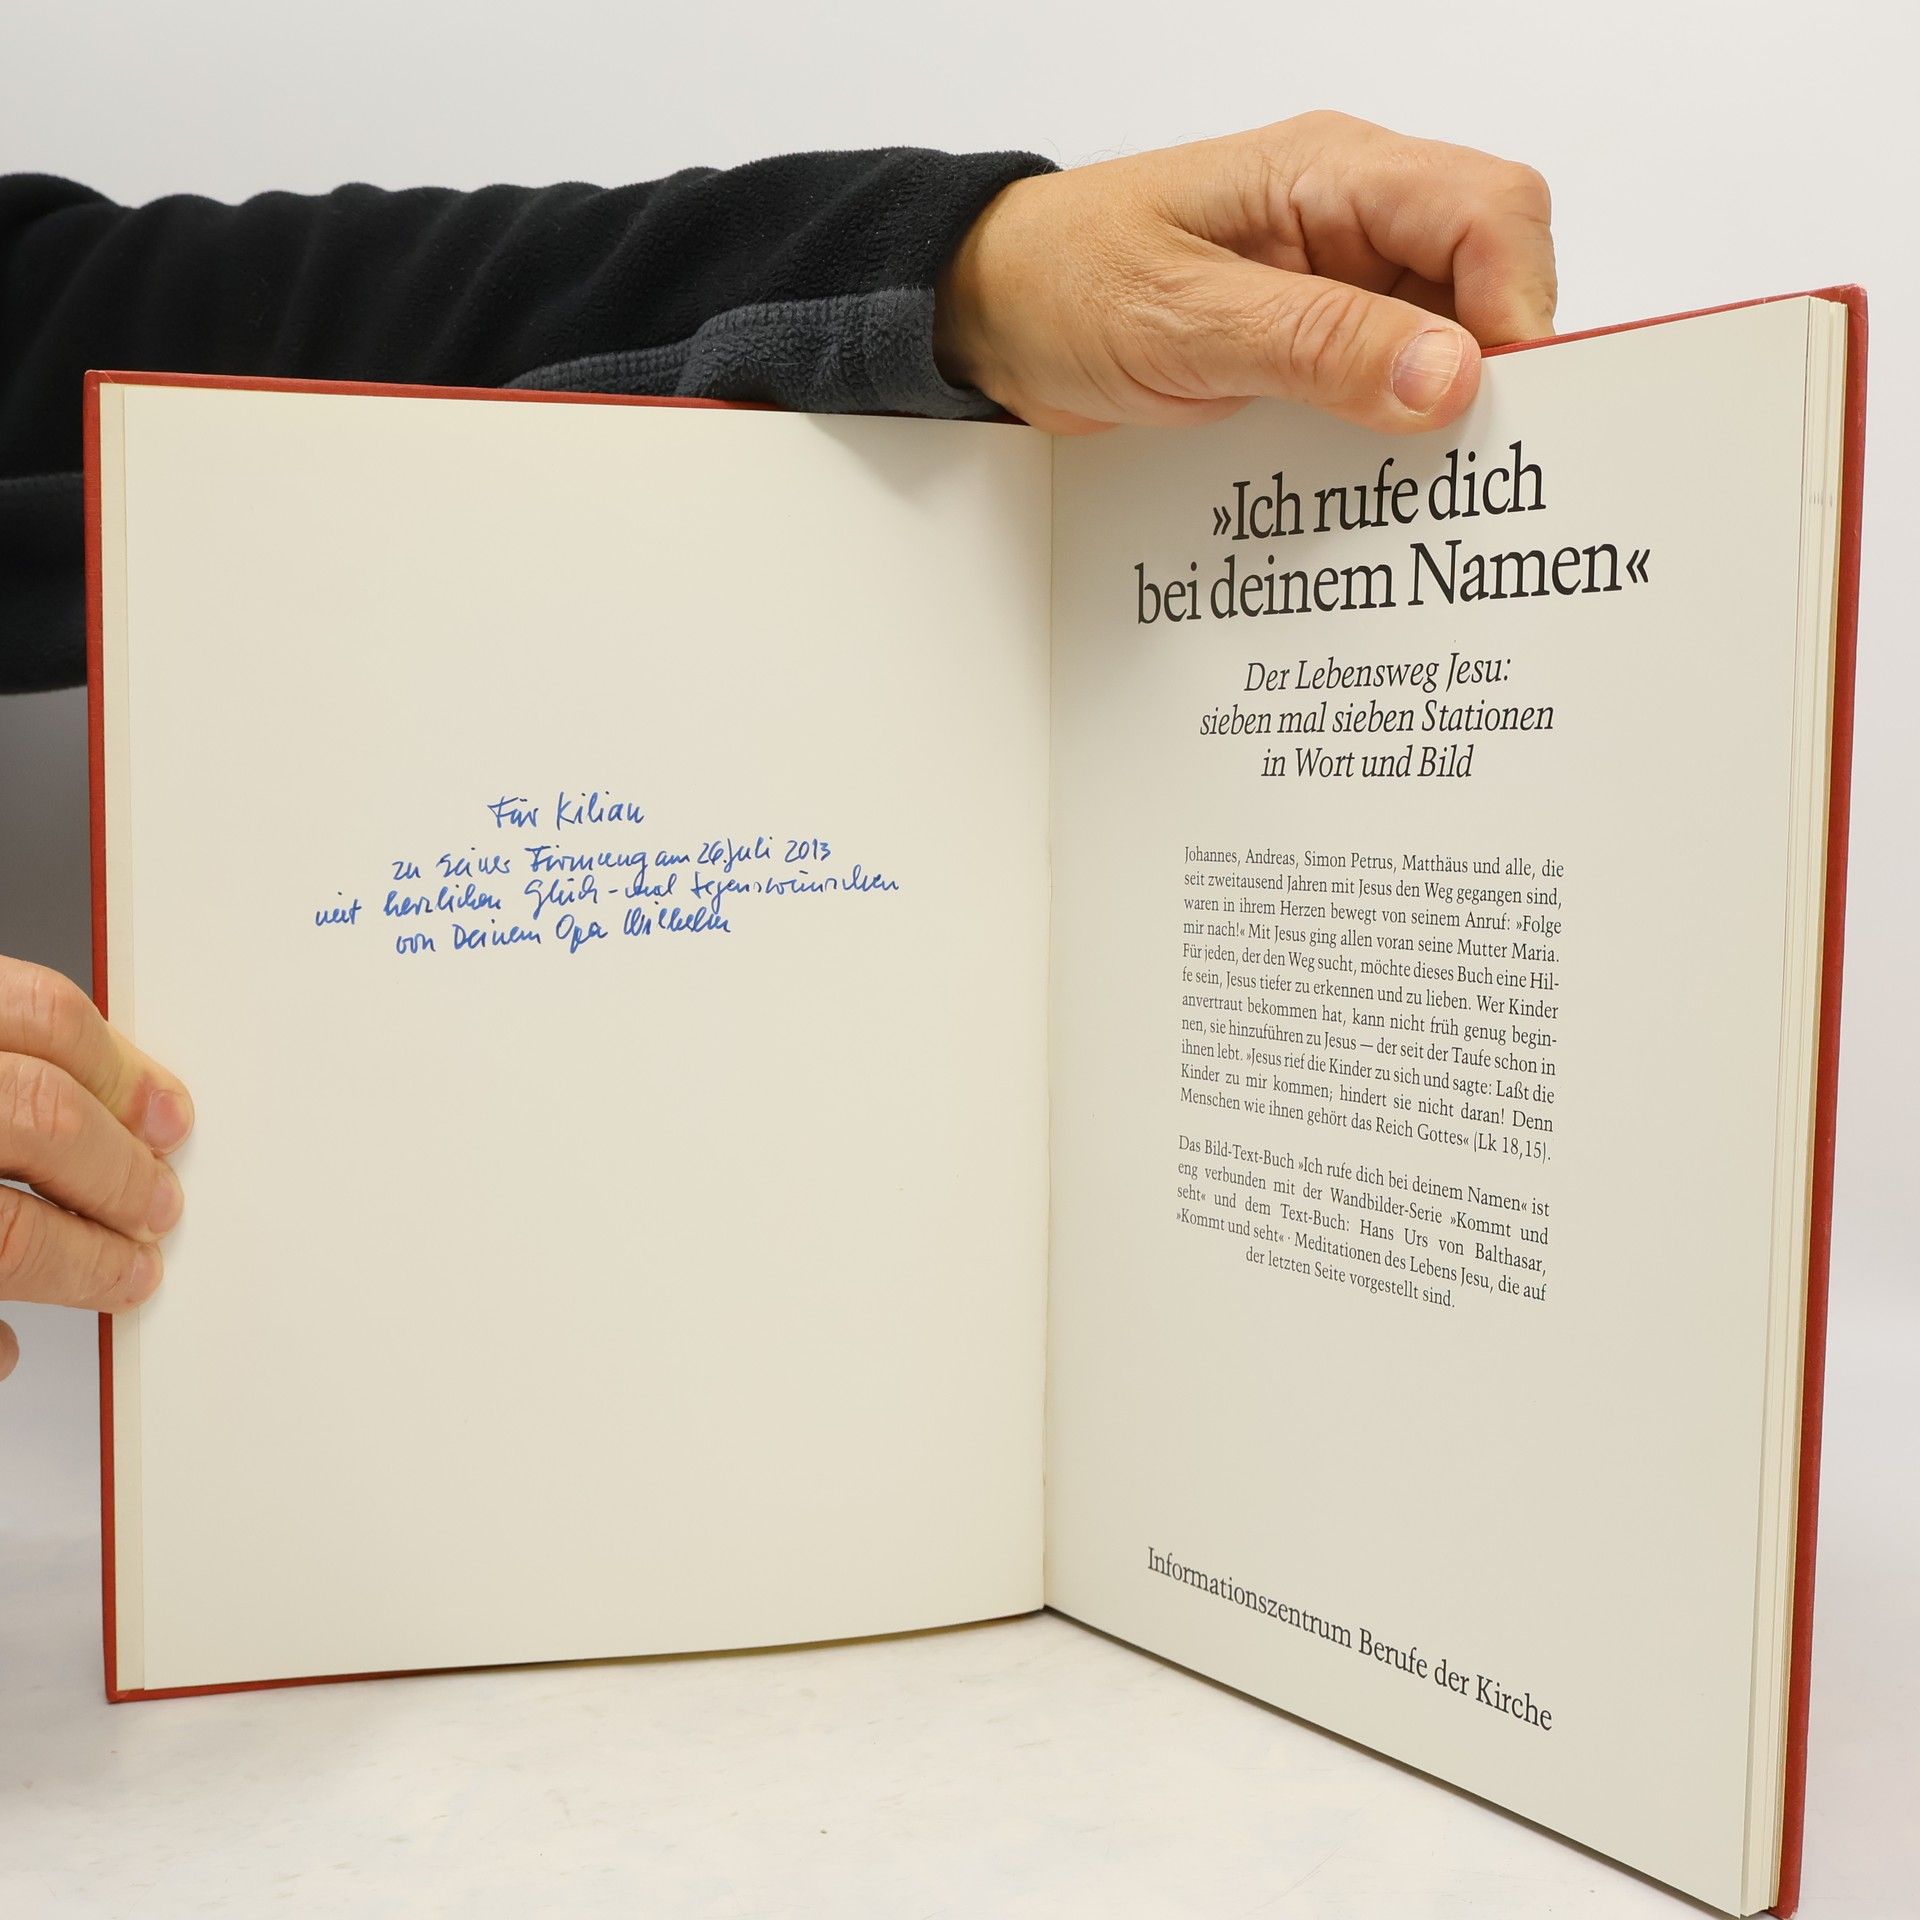 Für Kilian
zu seiner Firmung am 26. Juli 2013
mit herzlichen Glück- und Segenswünschen
von Deinem Opa Wilhelm
»Ich rufe dich
bei deinem Namen«
Der Lebensweg Jesu:
sieben mal sieben Stationen
in Wort und Bild
Johannes, Andreas, Simon Petrus, Matthäus und alle, die
seit zweitausend Jahren mit Jesus den Weg gegangen sind,
waren in ihrem Herzen bewegt von seinem Anruf: »Folge
mir nach!« Mit Jesus ging allen voran seine Mutter Maria.
Für jeden, der den Weg sucht, möchte dieses Buch eine Hil-
fe sein, Jesus tiefer zu erkennen und zu lieben. Wer Kinder
anvertraut bekommen hat, kann nicht früh genug begin-
nen, sie hinzuführen zu Jesus — der seit der Taufe schon in
ihnen lebt. »Jesus rief die Kinder zu sich und sagte: Laßt die
Kinder zu mir kommen; hindert sie nicht daran! Denn
Menschen wie ihnen gehört das Reich Gottes« (Lk 18,15).
Das Bild-Text-Buch »Ich rufe dich bei deinem Namen« ist
eng verbunden mit der Wandbilder-Serie »Kommt und
seht« und dem Text-Buch: Hans Urs von Balthasar,
»Kommt und seht« · Meditationen des Lebens Jesu, die auf
der letzten Seite vorgestellt sind.
Informationszentrum Berufe der Kirche